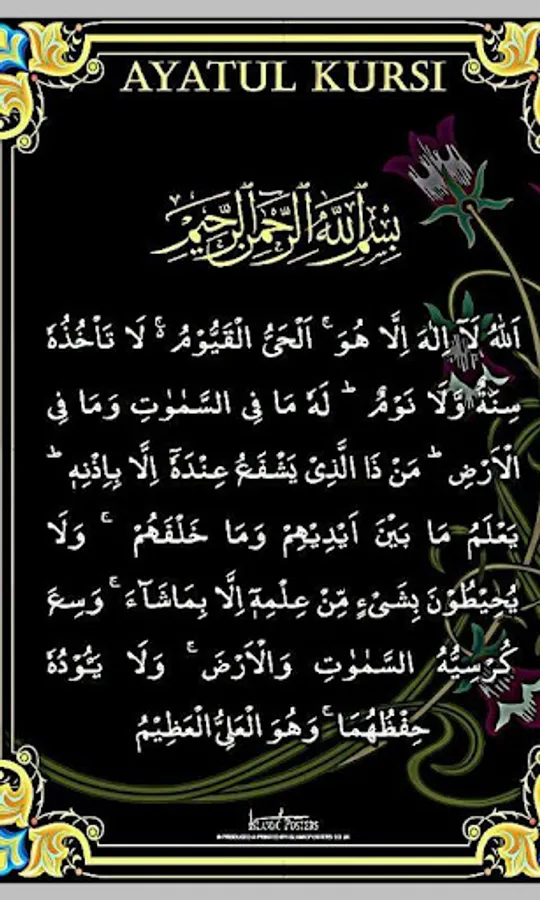 AYATUL KURSI
بِسْمِ اللّٰهِ الرَّحْمٰنِ الرَّحِيْمِ
اَللّٰهُ لَآ اِلٰهَ اِلَّا هُوَ ۚ اَلْحَيُّ الْقَيُّوْمُ ۚ لَا تَاْخُذُهٗ
سِنَةٌ وَّلَا نَوْمٌ ؕ لَهٗ مَا فِى السَّمٰوٰتِ وَمَا فِى
الْاَرْضِ ؕ مَنْ ذَا الَّذِىْ يَشْفَعُ عِنْدَهٗۤ اِلَّا بِاِذْنِهٖ ؕ
يَعْلَمُ مَا بَيْنَ اَيْدِيْهِمْ وَمَا خَلْفَهُمْ ۚ وَلَا
يُحِيْطُوْنَ بِشَىْءٍ مِّنْ عِلْمِهٖۤ اِلَّا بِمَاشَآءَ ۚ وَسِعَ
كُرْسِيُّهُ السَّمٰوٰتِ وَالْاَرْضَ ۚ وَلَا يَـُٔوْدُهٗ
حِفْظُهُمَا ۚ وَهُوَ الْعَلِىُّ الْعَظِيْمُ
ISLAMIC POSTERS